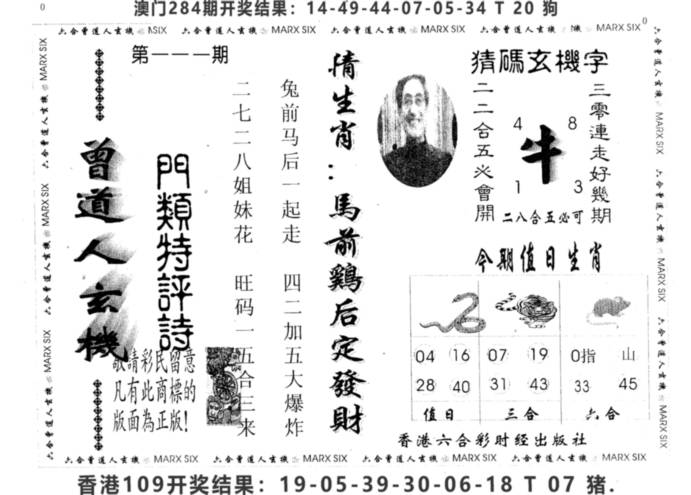 澳门284期开奖结果：14-49-44-07-05-34 T 20 狗
六合曹道人玄機 MARX SIX
第一一一期
曾道人玄機
門類特評詩
敬請彩民留意
凡有此商標的
版面為正版！
二七二八姐妹花 旺码一五合三来
兔前马后一起走 四二加五大爆炸
猜生肖：馬前鷄后定發財
猜碼玄機字
三零連走好幾期
二二合五必會開
4 8
牛
1 3
二八合五必可
今期值日生肖
04 16 07 19 0指 山
28 40 31 43 33 45
值日 三合 六合
香港六合彩财经出版社
六合曹道人玄機 MARX SIX
香港109开奖结果：19-05-39-30-06-18 T 07 猪.